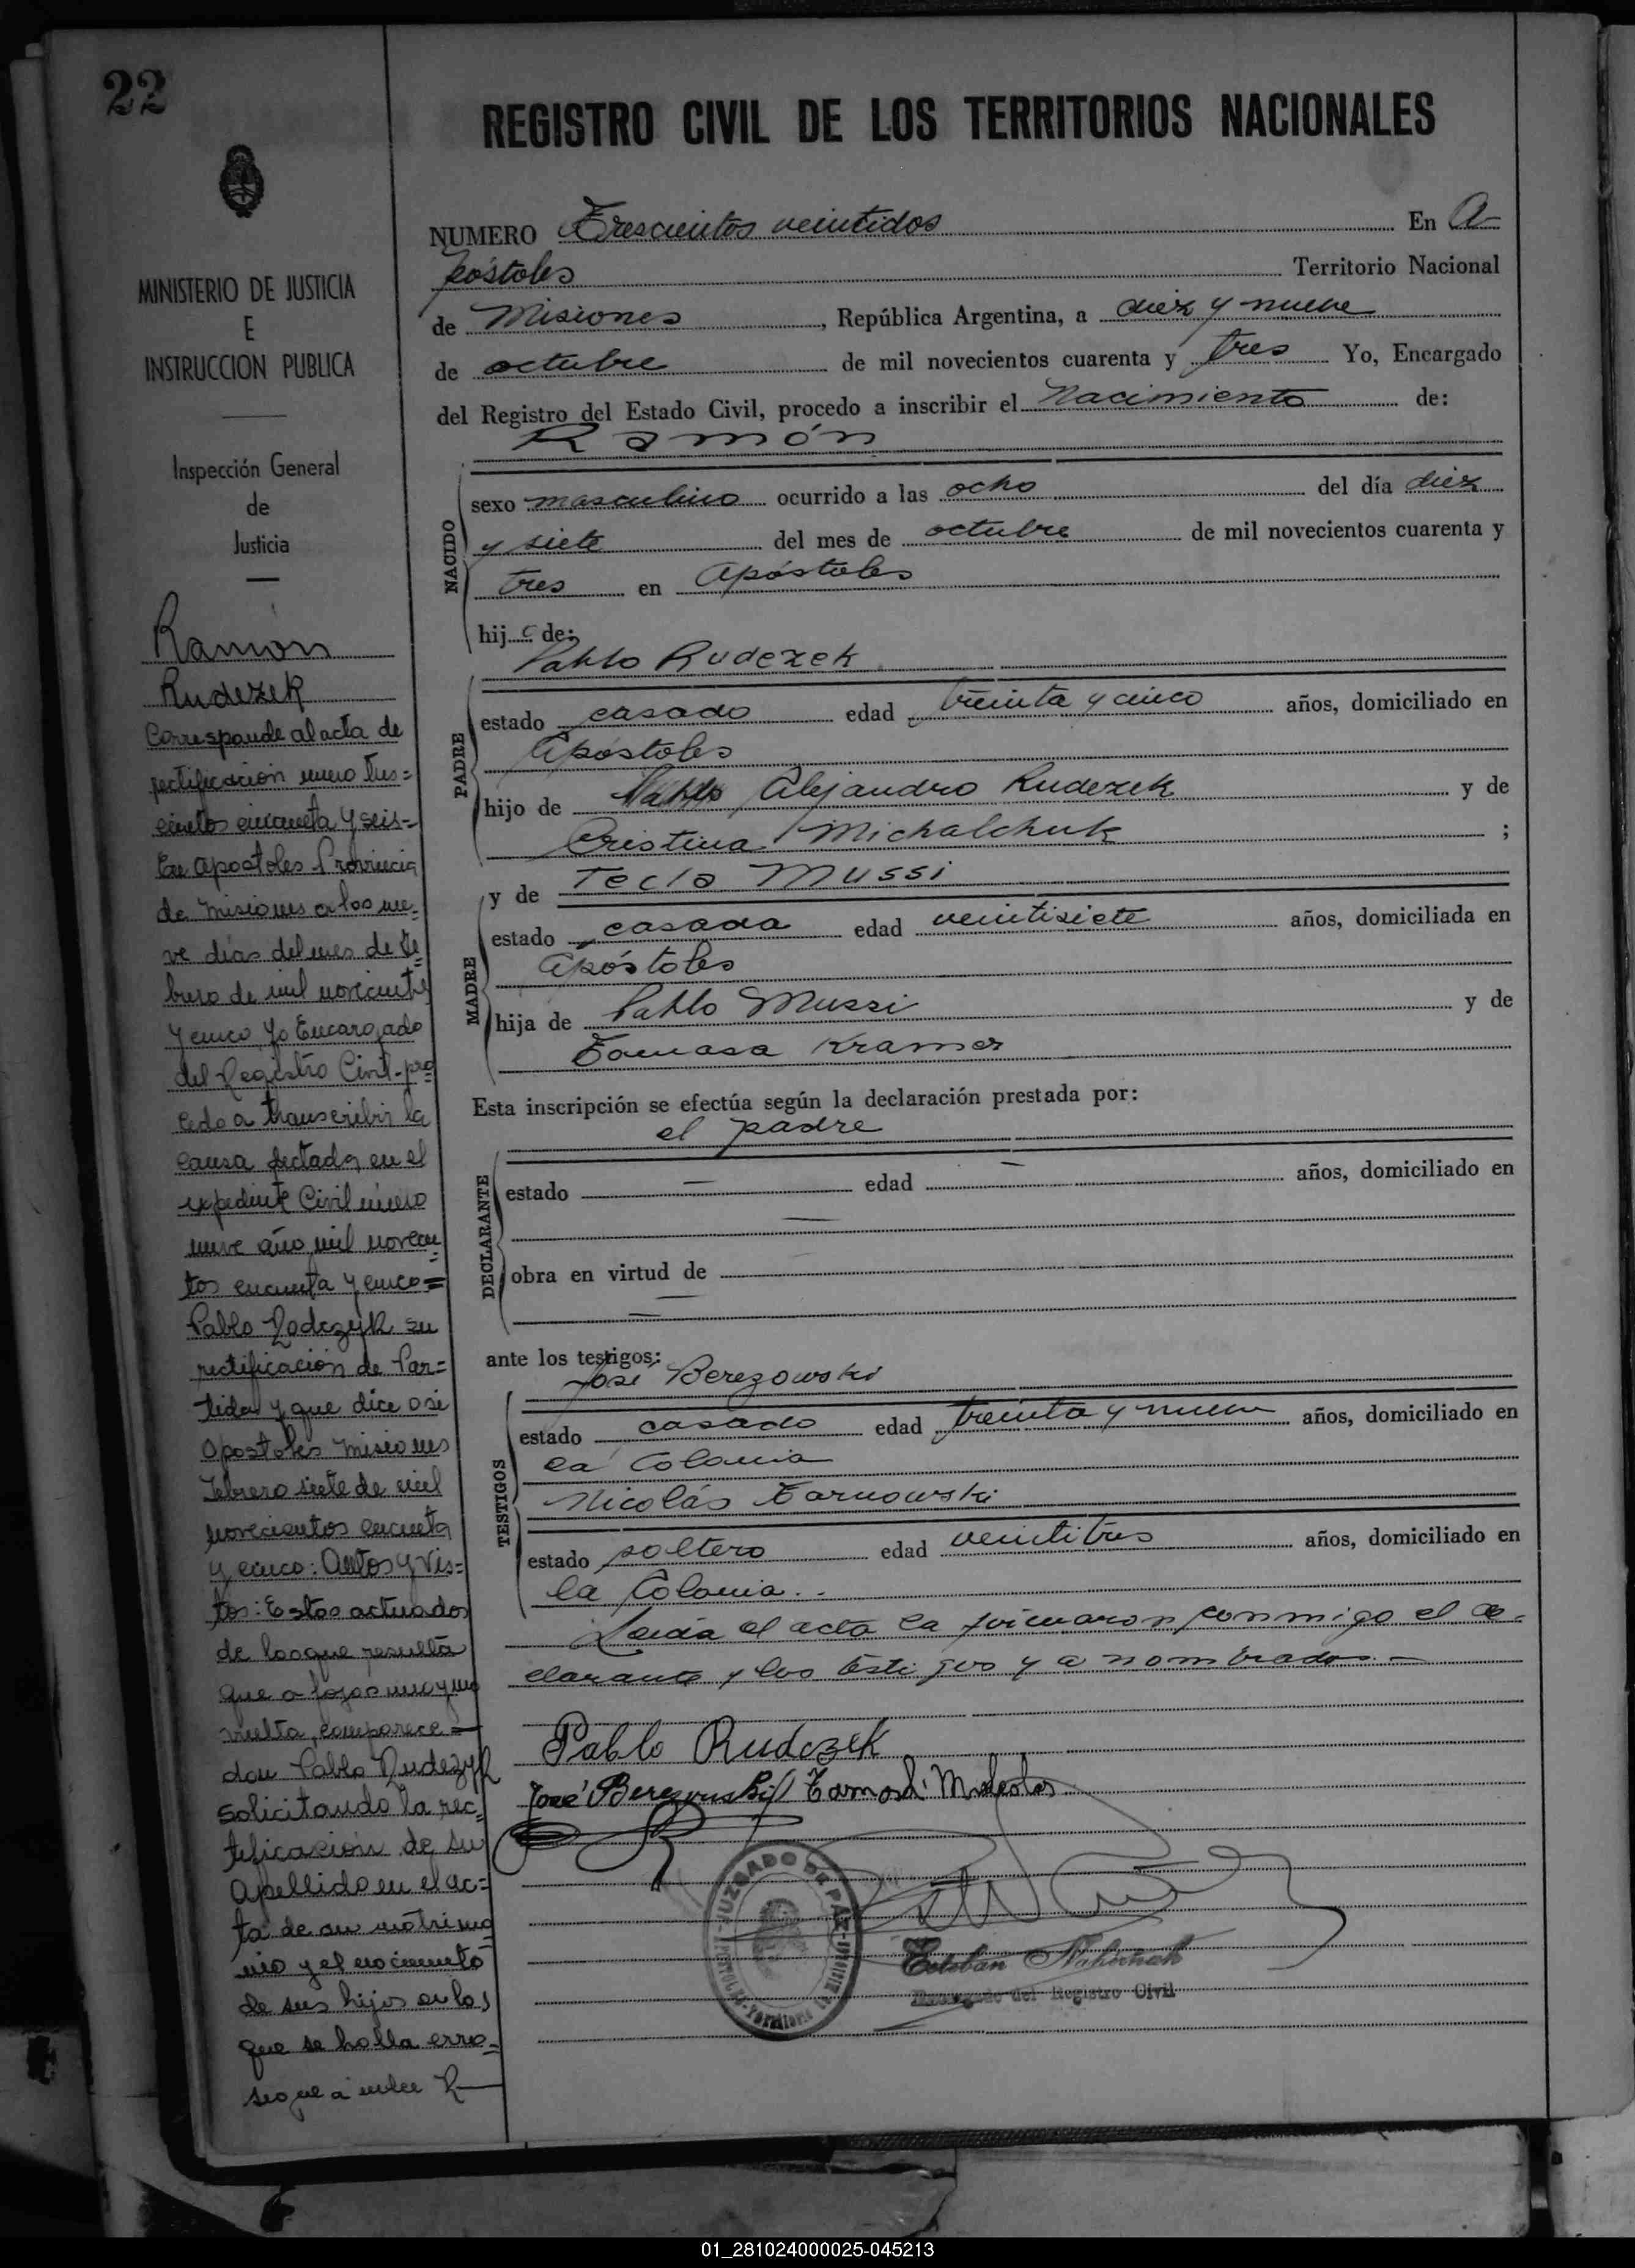 22
REGISTRO CIVIL DE LOS TERRITORIOS NACIONALES
MINISTERIO DE JUSTICIA
E
INSTRUCCION PUBLICA
Inspección General
de
Justicia
Ramón
Rudezek
Corresponde al acta de
rectificación
y seis=
En Apostoles Provincia
de Misiones a los nue=
ve dias del mes de fe=
brero de mil novecientos
y cinco, Yo Encargado
del Registro Civil pro=
cedo a transcribir la
causa dictada en el
expediente Civil número
nueve año mil novecien=
tos cincuenta y cinco=
Pablo Rodczyk su
rectificación de Par=
tida y que dice asi
Apostoles Misiones
Febrero siete de mil
novecientos cincuenta
y cinco: Autos y Vis=
tos: Estos actuados
de los que resulta
que a fojas uno y uno
vuelta, comparece=
don Pablo Rudezyk
solicitando la rec=
tificación de su
apellido en el ac=
ta de su matrimo=
nio y el nacimiento
de sus hijos en los
que se halla erro=
sigue a
NUMERO Trescientos veintidos En A-
póstoles Territorio Nacional
de Misiones, República Argentina, a diez y nueve
de octubre de mil novecientos cuarenta y tres Yo, Encargado
del Registro del Estado Civil, procedo a inscribir el Nacimiento de:
Ramón
NACIDO
sexo masculino ocurrido a las ocho del día diez
y siete del mes de octubre de mil novecientos cuarenta y
tres en Apóstoles
hij o de:
Pablo Rudezek
PADRE
estado casado edad treinta y cinco años, domiciliado en
Apóstoles
hijo de Alejandro Rudezek y de
Cristina Michalchuk ;
y de Tecla Mussi
MADRE
estado casada edad veintisiete años, domiciliada en
Apóstoles
hija de Pablo Mussi y de
Tomasa Kramer
Esta inscripción se efectúa según la declaración prestada por:
el padre
DECLARANTE
estado — edad — años, domiciliado en
—
obra en virtud de —
—
ante los testigos:
José Berezowski
TESTIGOS
estado casado edad treinta y nueve años, domiciliado en
la Colonia
Nicolás Tarnowski
estado soltero edad veintitres años, domiciliado en
la Colonia.
Leída el acta la firmaron conmigo el de-
clarante y los testigos ya nombrados.—
Pablo Rudczek
José Berezouski
JUZGADO DE PAZ
Esteban
Encargado del Registro Civil
01_281024000025-045213